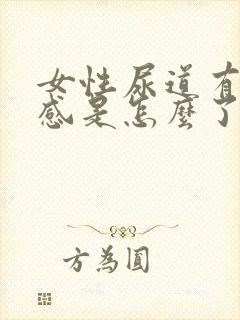 女性尿道有
感是怎麼了
方為圓